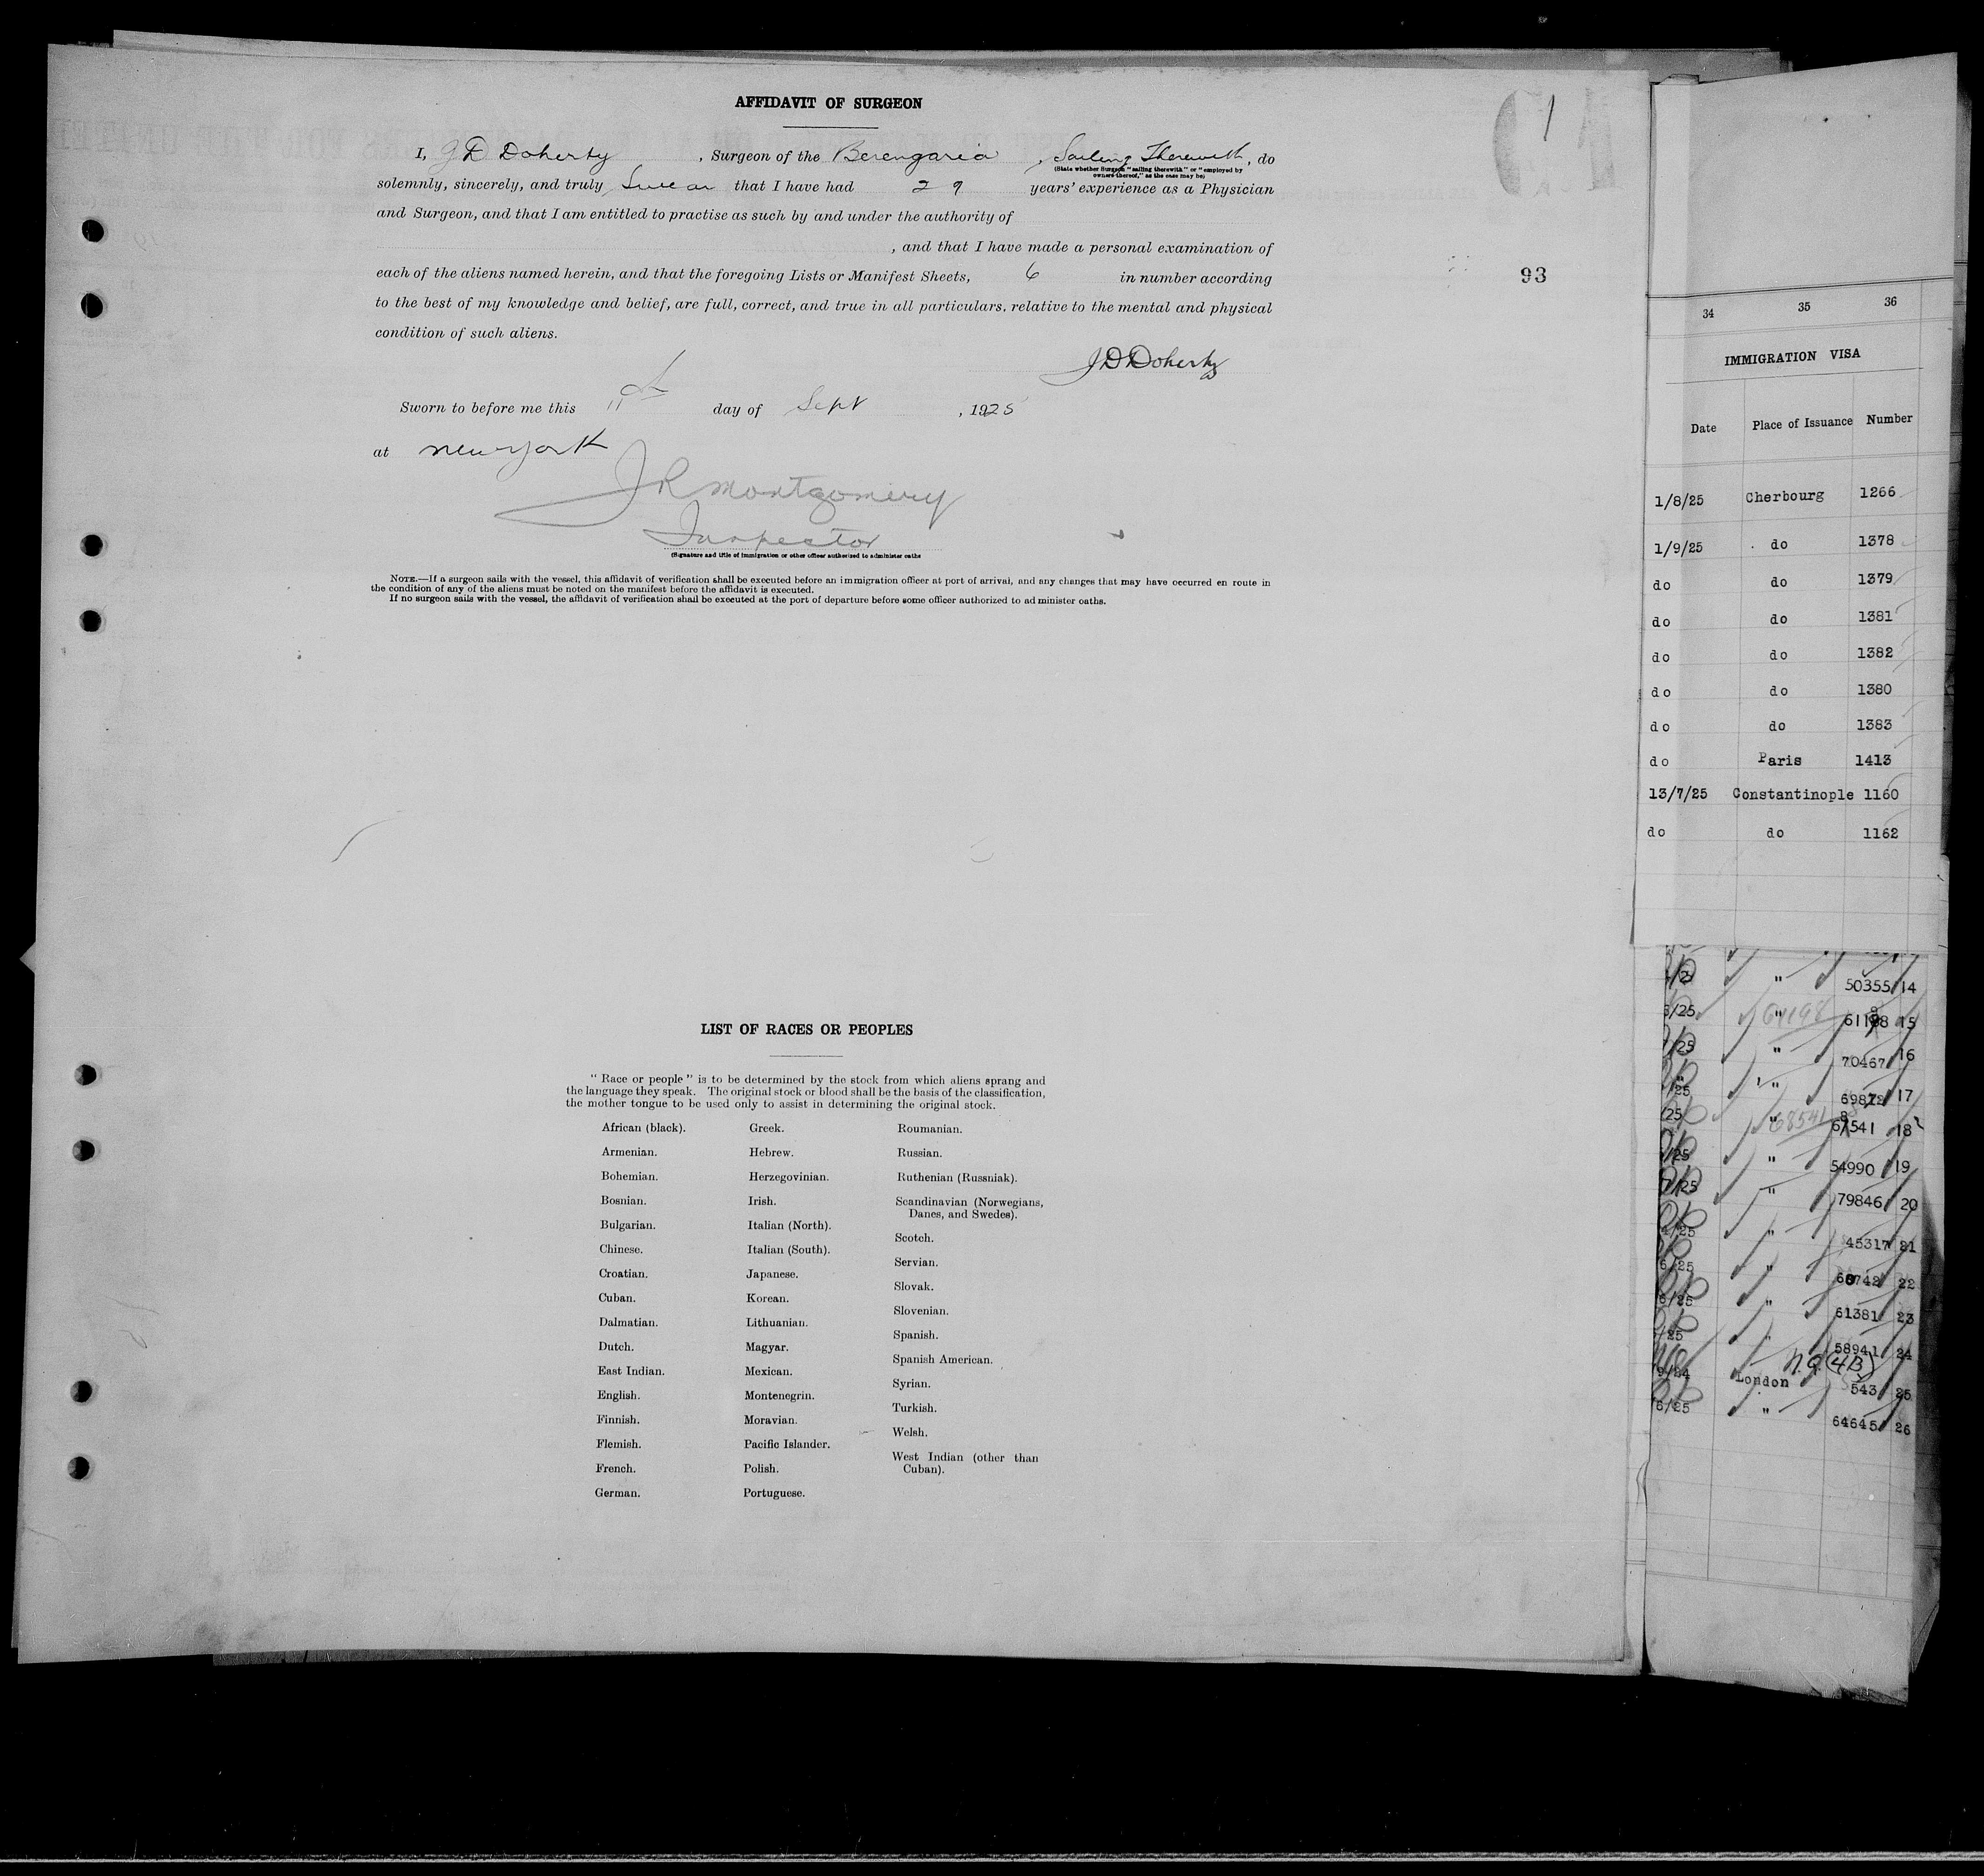 AFFIDAVIT OF SURGEON
1
I, J D Doherty, Surgeon of the Berengaria, Sailing Therewith, do
(State whether Surgeon "sailing therewith" or "employed by
owners thereof," as the case may be)
solemnly, sincerely, and truly Swear that I have had 29 years' experience as a Physician
and Surgeon, and that I am entitled to practise as such by and under the authority of
, and that I have made a personal examination of
each of the aliens named herein, and that the foregoing Lists or Manifest Sheets, 6 in number according
93
to the best of my knowledge and belief, are full, correct, and true in all particulars, relative to the mental and physical
condition of such aliens.
J D Doherty
Sworn to before me this 11th day of Sept, 1925
at new york
J R Montgomery
Inspector
(Signature and title of immigration or other officer authorized to administer oaths
NOTE.—If a surgeon sails with the vessel, this affidavit of verification shall be executed before an immigration officer at port of arrival, and any changes that may have occurred en route in
the condition of any of the aliens must be noted on the manifest before the affidavit is executed.
If no surgeon sails with the vessel, the affidavit of verification shall be executed at the port of departure before some officer authorized to administer oaths.
LIST OF RACES OR PEOPLES
"Race or people" is to be determined by the stock from which aliens sprang and
the language they speak. The original stock or blood shall be the basis of the classification,
the mother tongue to be used only to assist in determining the original stock.
African (black).
Armenian.
Bohemian.
Bosnian.
Bulgarian.
Chinese.
Croatian.
Cuban.
Dalmatian.
Dutch.
East Indian.
English.
Finnish.
Flemish.
French.
German.
Greek.
Hebrew.
Herzegovinian.
Irish.
Italian (North).
Italian (South).
Japanese.
Korean.
Lithuanian.
Magyar.
Mexican.
Montenegrin.
Moravian.
Pacific Islander.
Polish.
Portuguese.
Roumanian.
Russian.
Ruthenian (Russniak).
Scandinavian (Norwegians,
Danes, and Swedes).
Scotch.
Servian.
Slovak.
Slovenian.
Spanish.
Spanish American.
Syrian.
Turkish.
Welsh.
West Indian (other than
Cuban).
34 35 36
IMMIGRATION VISA
Date Place of Issuance Number
1/8/25 Cherbourg 1266
1/9/25 do 1378
do do 1379
do do 1381
do do 1382
do do 1380
do do 1383
do Paris 1413
13/7/25 Constantinople 1160
do do 1162
" 50355 14
/25 " 61198 15
/25 " 70467 16
/25 " 17
/25 " 68541 18
/25 " 54990 19
/25 " 79846 20
/25 " 45317 21
6/25 " 22
/25 " 61381 23
/25 " 58941 24
n.q. (4B)
London 543 25
6/25 " 64645 26